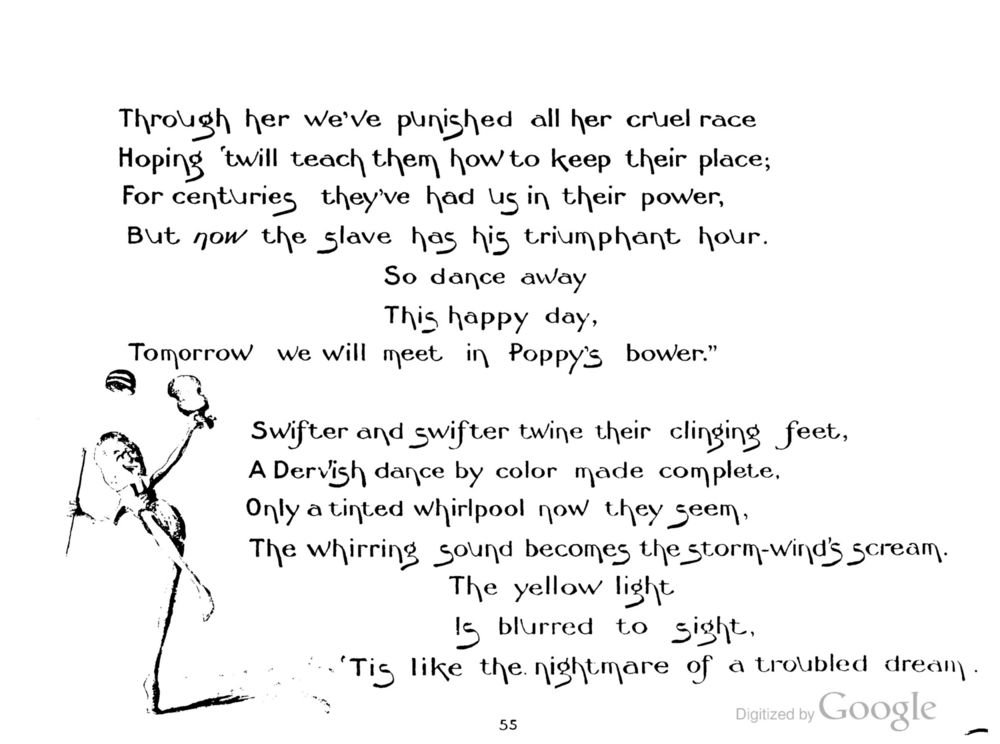 Through her we've punished all her cruel race
Hoping 'twill teach them how to keep their place;
For centuries they've had us in their power,
But now the slave has his triumphant hour.
So dance away
This happy day,
Tomorrow we will meet in Poppy's bower."
Swifter and swifter twine their clinging feet,
A Dervish dance by color made complete,
Only a tinted whirlpool now they seem,
The whirring sound becomes the storm-wind's scream.
The yellow light
Is blurred to sight,
'Tis like the nightmare of a troubled dream.
55
Digitized by Google